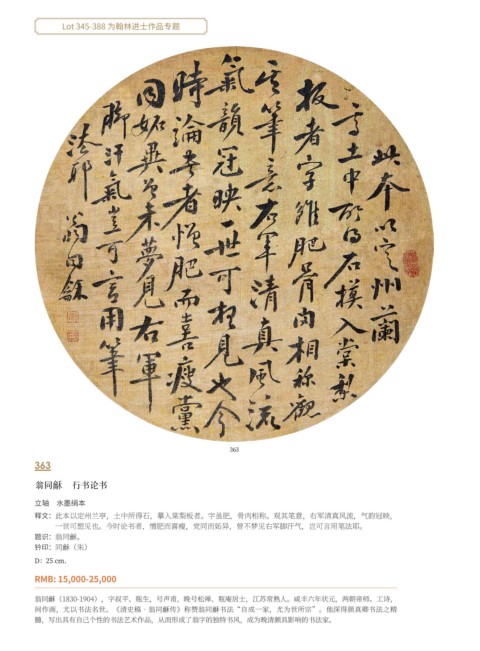 Lot 345-388 为翰林进士作品专题
此本以定州蘭
亭土中所得石摸入棠梨
板者字雖肥骨肉相称觀
其筆意右軍清真風流
氣韻冠映一世可想見也今
時論書者憎肥而喜瘦黨
同妬異曾未夢見右軍
脚汗氣豈可言用筆
法邪
翁同龢
363
363
翁同龢 行书论书
立轴 水墨绢本
释文：此本以定州兰亭，土中所得石，摹入棠梨板者。字虽肥，骨肉相称。观其笔意，右军清真风流，气韵冠映，
一世可想见也。今时论书者，憎肥而喜瘦，党同而妬异，曾不梦见右军脚汗气，岂可言用笔法耶。
题识：翁同龢。
钤印：同龢（朱）
D：25 cm.
RMB: 15,000-25,000
翁同龢（1830-1904），字叔平、瓶生，号声甫，晚号松禅、瓶庵居士，江苏常熟人。咸丰六年状元，两朝帝师。工诗，
间作画，尤以书法名世。《清史稿·翁同龢传》称赞翁同龢书法“自成一家，尤为世所宗”。他深得颜真卿书法之精
髓，写出具有自己个性的书法艺术作品，从而形成了翁字的独特书风，成为晚清颇具影响的书法家。